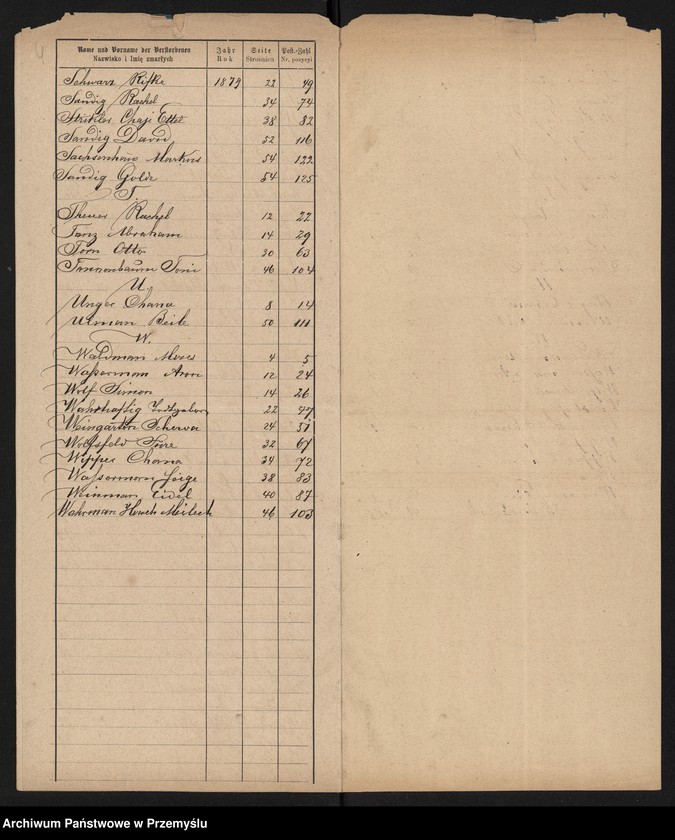 Name und Vorname der Verstorbenen Jahr Seite Post-Zahl
Nazwisko i Imię zmarłych Rok Stronnica Nr. pozycyi
Schwarz Rifke 1879 22 49
Sandig Rachel 34 74
Strikler Chaje Ettel 38 82
Sandig David 52 116
Sachsenhaus Markus 54 122
Sandig Golde 54 125
T.
Theuer Rachel 12 22
Tanz Abraham 14 29
Torn Otto 30 63
Tannenbaum 46 104
U.
Unger Chane 8 14
Ulman Beile 50 111
W.
Waldman Moses 4 5
Wasserman 12 24
Wolf Simon 14 26
Wahrhaftig 22 47
Weingarten 24 51
Wolfsfeld 32 67
Wipper Chana 34 72
Wassermann Feige 38 83
Weinman Eidel 40 87
Wahrman Hersch Meilech 46 103
Archiwum Państwowe w Przemyślu